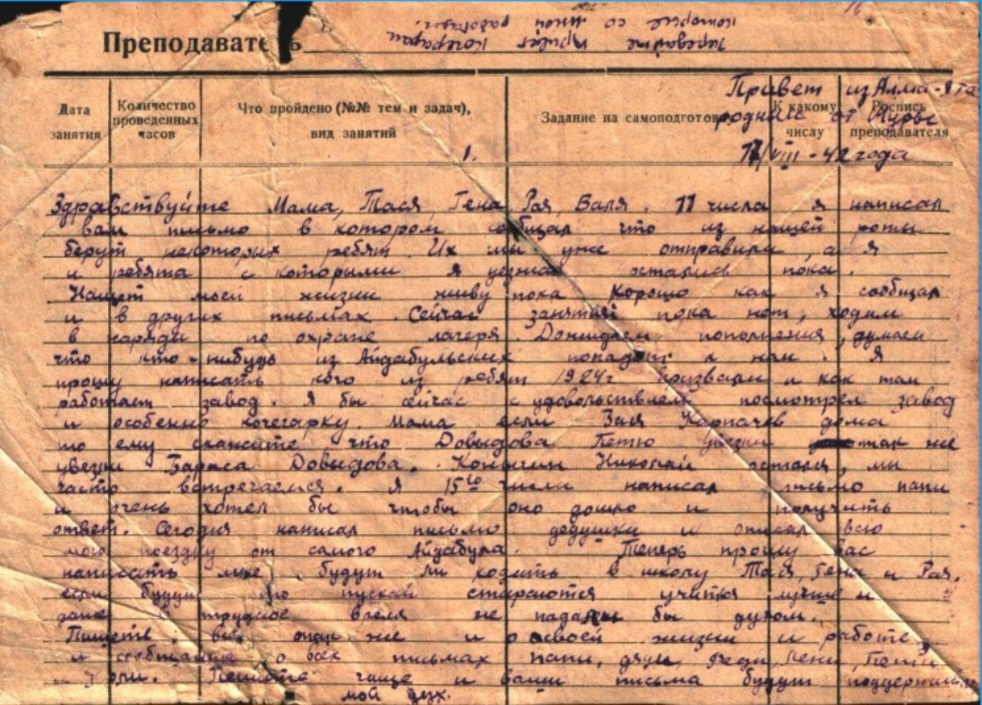 16
которые со мной работали.
Передайте привет кочегарам
Преподаватель
Дата занятия
Количество проведенных часов
Что пройдено (№№ тем и задач), вид занятий
Задание на самоподготов
К какому числу
Роспись преподавателя
Привет из Алма-Ата
родным от Шуры
1.
17/VIII-42 года
Здравствуйте Мама, Тася, Гена, Рая, Валя. 11 числа я написал
вам письмо в котором сообщал что из нашей роты
берут некоторых ребят. Их мы уже отправили, а я
и ребята с которыми я уезжал остались пока.
Нащет моей жизни живу пока хорошо как я сообщал
и в других письмах. Сейчас занятий пока нет, ходим
в наряды по охране лагеря. Дожидаем пополнения, думаем
что кто-нибудь из Айдабульских попадет к нам. Я
прошу написать кого из ребят 1924г призвали и как там
работает завод. Я бы сейчас с удовольствием посмотрел завод
и особенно кочегарку. Мама если Вася Карпачев дома
то ему скажите что Довыдова Петю увезли так же
увезли Бориса Довыдова. Николай остался, мы
часто встречаемся. Я 15го числа написал письмо папи
и очень хотел бы чтобы оно дошло и получить
ответ. Сегодня написал письмо дедушки и описал всю
мою поездку от самого Айдабула. Теперь прошу вас
написать мне будут ли ходить в школу Тася, Гена и Рая,
если будут то пускай стараются учится лучше и
даже в трудное время не падали бы духом.
Пишете все опять же и о своей жизни и работе,
и сообщайте о всех письмах папи, дяди, Лени, Пети
и Коли. Пишите чаще и ваши письма будут поддерживать
мой дух.